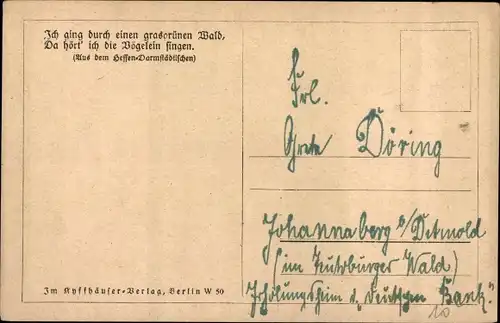 Ich ging durch einen grasgrünen Wald,
Da hört' ich die Vögelein singen.
(Aus dem Hessen-Darmstädtischen)
Frl.
Grete Döring
Johannaberg b/Detmold
(im Teutoburger Wald)
Erholungsheim d. Deutschen Bank.
10
Im Kyffhäuser-Verlag, Berlin W 50